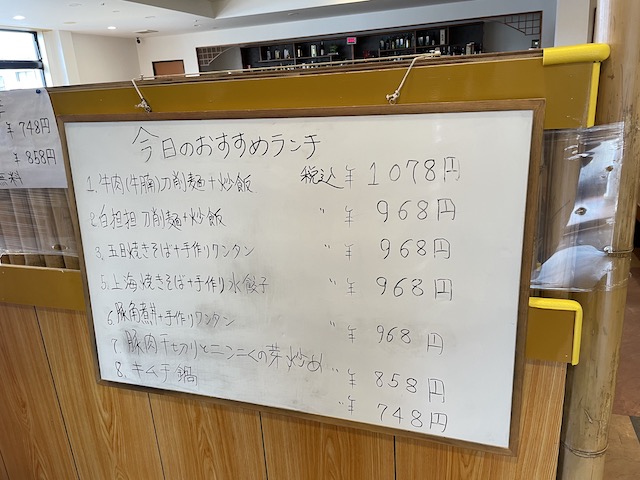 ¥748円
¥858円
無料
今日のおすすめランチ
1.牛肉(牛腩)刀削麺+炒飯 税込 ¥ 1078円
2.白担担刀削麺+炒飯 〃 ¥ 968円
3.五目焼きそば+手作りワンタン 〃 ¥ 968円
5.上海焼きそば+手作り水餃子 〃 ¥ 968円
6.豚角煮丼+手作りワンタン 〃 ¥ 968円
7.豚肉千切りとニンニクの芽炒め 〃 ¥ 858円
8.キムチ鍋 〃 ¥ 748円